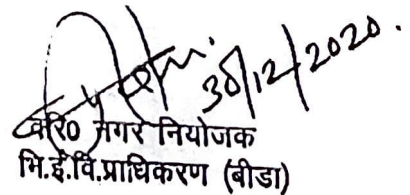 30/12/2020.
वरि0 नगर नियोजक
भि.ई.वि.प्राधिकरण (बीडा)